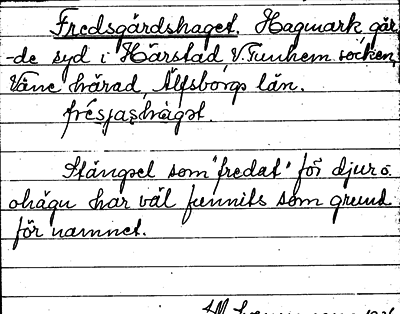 Fredsgärdshaget. Hagmark går
-de syd i Härstad, V. Tunhem socken,
Väne härad, Älfsborgs län.
frésjashàgət.
Stängsel som "fredat" för djur o.
ohägn har väl funnits som grund
för namnet.